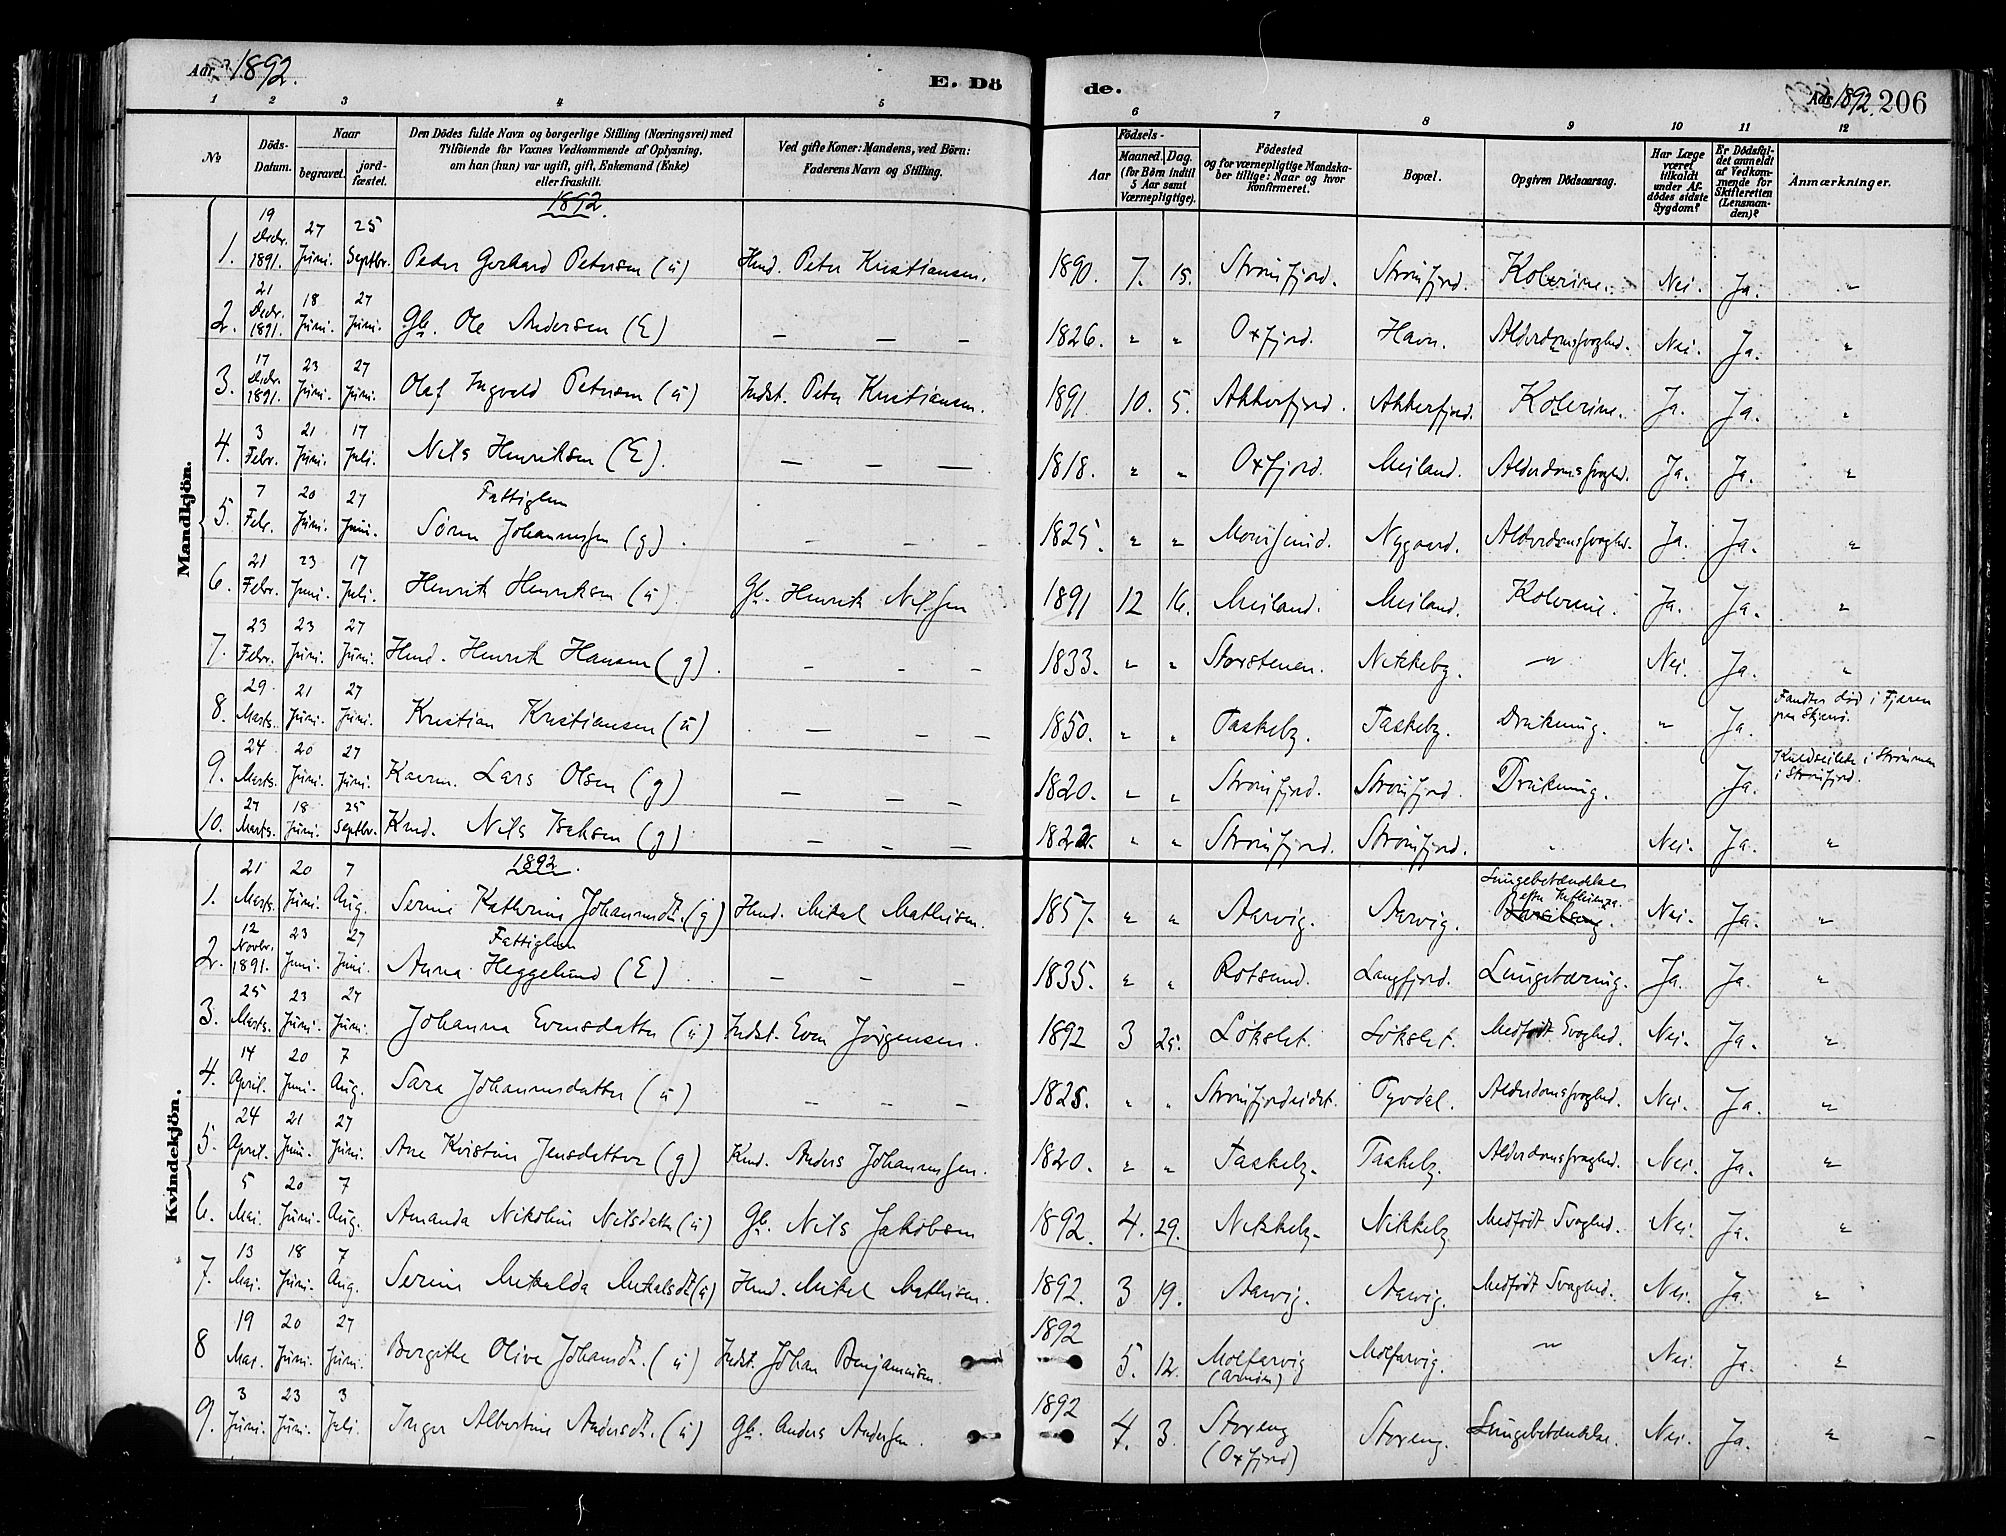 Aar 1892.
E. Dö
de.
Aar 1892. 206
1 2 3 4 5
6 7 8 9 10 11 12
No
Döds-Datum.
Naar
begravet.
jord-fæstet.
Den Dödes fulde Navn og borgerlige Stilling (Næringsvei) med
Tilföiende for Voxnes Vedkommende af Oplysning,
om han (hun) var ugift, gift, Enkemand (Enke)
eller fraskilt.
Ved gifte Koner: Mandens, ved Börn:
Faderens Navn og Stilling.
Aar
Födsels-
Maaned. Dag.
(for Börn indtil
5 Aar samt
Værnepligtige).
Födested
og for værnepligtige Mandska-
ber tillige: Naar og hvor
Konfirmeret.
Bopæl.
Opgiven Dödsaarsag.
Har Læge
været
tilkaldt
under Af-
dödes sidste
Sygdom?
Er Dödsfal-
det anmeldt
af Vedkom-
mende for
Skifteretten
(Lensman-
den)?
Anmærkninger.
Mandkjön.
1892.
1. 19 Decbr. 1891. 27 Juni. 25 Septbr. Peder Gerhard Petersen (u) Kmd. Peter Kristiansen. 1890. 7. 15. Strömfjord. Strömfjord. Kolerine. Nei. Ja. "
2. 21 Decbr. 1891. 18 Juni. 27 Juni. Gb. Ole Andersen (E) — — — 1826. " " Oxfjord. Havn. Alderdomssvaghed. Nei. Ja. "
3. 17 Decbr. 1891. 23 Juni. 27 Juni. Olaf Ingvald Petersen (u) Indst. Peter Kristiansen. 1891. 10. 5. Akkerfjord. Akkerfjord. Kolerine. Ja. Ja. "
4. 3 Febr. 21 Juni. 17 Juli. Nils Henriksen (E). — — — 1818. " " Oxfjord. Meiland. Alderdomssvaghed. Ja. Ja. "
5. 7 Febr. 20 Juni. 27 Juni. Fattiglem
Sören Johannessen (g). — — — 1825. " " Maursund. Nygaard. Alderdomssvaghed. Ja. Ja. "
6. 21 Febr. 23 Juni. 17 Juli. Henrik Henriksen (u). Gb. Henrik Nilssen 1891 12 16. Meiland. Meiland. Kolerine. Ja. Ja. "
7. 23 Febr. 23 Juni. 27 Juni. Kmd. Henrik Hansen (g). — — — 1833. " " Storstenen. Nikkeby. " Nei. Ja. "
8. 29 Marts. 21 Juni. 27 Juni. Kristian Kristiansen (u) — — — 1850. " " Taskeby. Taskeby. Drukning. " Ja. Fandtes död i Fjæren
9. 24 Marts. 20 Juni. 27 Juni. Kaarm. Lars Olsen (g) — — — 1820. " " Strömfjord. Strömfjord. Drukning. Ja. Kuldseilede i Strömmen
i Strömfjord.
10. 27 Marts. 18 Juni. 25 Septbr. Kmd. Nils Isaksen (g) — — — 1822. " " Strömfjord. Strömfjord. " Nei. Ja. "
Kvindekjön.
1892.
1. 21 Marts. 20 Juni. 7 Aug. Serine Kathrine Johannesdt. (g) Kmd. Mikal Mathisen. 1857. " " Aarvig. Aarvig. Lungebetændelse
efter Influenza. Nei. Ja. "
2. 12 Novbr. 1891. 23 Juni. 27 Juni. Fattiglem
Anna Heggelund (E) — — — 1835. " " Rotsund. Langfjord. Lungetæring. Ja. Ja. "
3. 25 Marts. 23 Juni. 27 Juni. Johanna Evensdatter (u) Indst. Even Jörgensen. 1892 3 25. Lökslet. Lökslet. Medfödt Svaghed. Nei. Ja. "
4. 14 April. 20 Juni. 7 Aug. Sara Johannesdatter (u) — — — 1825. " " Strömfjordeidet. Tyvdal. Alderdomssvaghed. Nei. Ja. "
5. 24 April. 21 Juni. 27 Juni. Ane Kristine Jensdatter (g) Kmd. Anders Johannessen. 1820. " " Taskeby. Taskeby. Alderdomssvaghed. Nei. Ja. "
6. 5 Mai. 20 Juni. 7 Aug. Amanda Nikoline Nilsdatter (u) Gb. Nils Jakobsen 1892. 4. 29. Nikkeby. Nikkeby Medfödt Svaghed. Nei. Ja. "
7. 13 Mai. 18 Juni. 7 Aug. Serine Mikalda Mikalsdt (u) Kmd. Mikal Mathisen. 1892. 3 19. Aarvig. Aarvig. Medfödt Svaghed. Nei. Ja. "
8 19 Mai. 20 Juni. 27 Juni. Bergithe Olive Johansdt. (u) Indst. Johan Benjaminsen. 1892 5. 12. Molfarvig
(Arnöen) Molfarvig. " Nei. Ja. "
9. 3 Juni. 23 Juni. 3 Juli. Inger Albertine Andersdt. (u) Gb. Anders Andersen. 1892 4. 3. Storeng
(Oxfjord) Storeng. Lungebetændelse. Nei. Ja. "